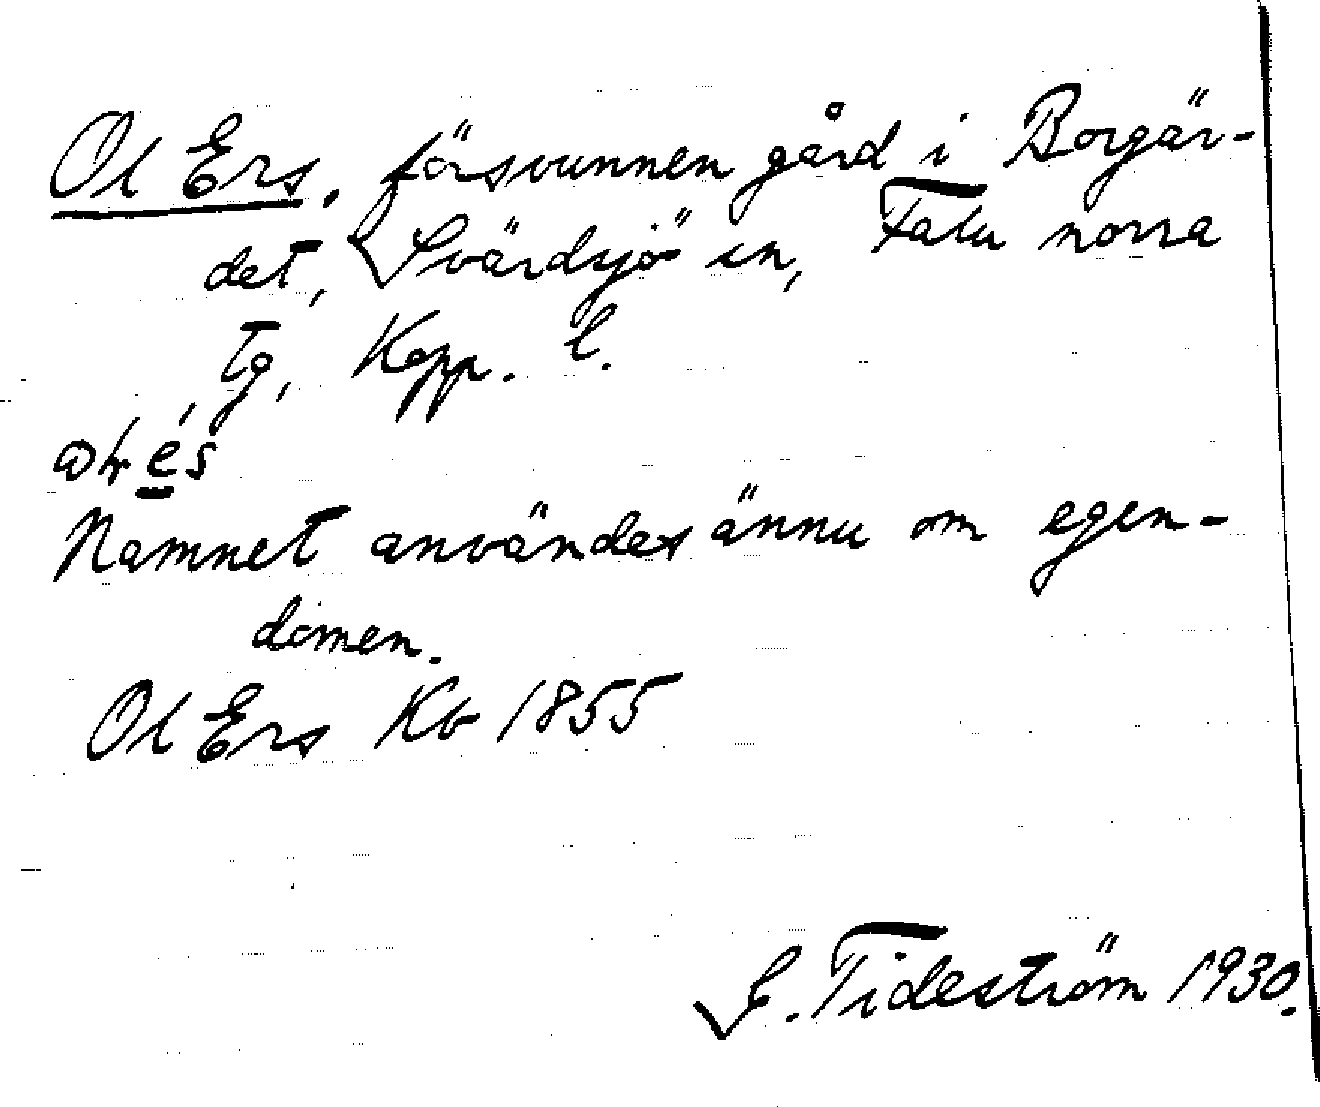 Ol Ers, försvunnen gård i Borgär-
det, Svärdsjö sn, Falu norra
tg, Kopp. l.
Namnet användes ännu om egen-
domen.
Ol Ers Kb 1855
G. Tideström 1930.